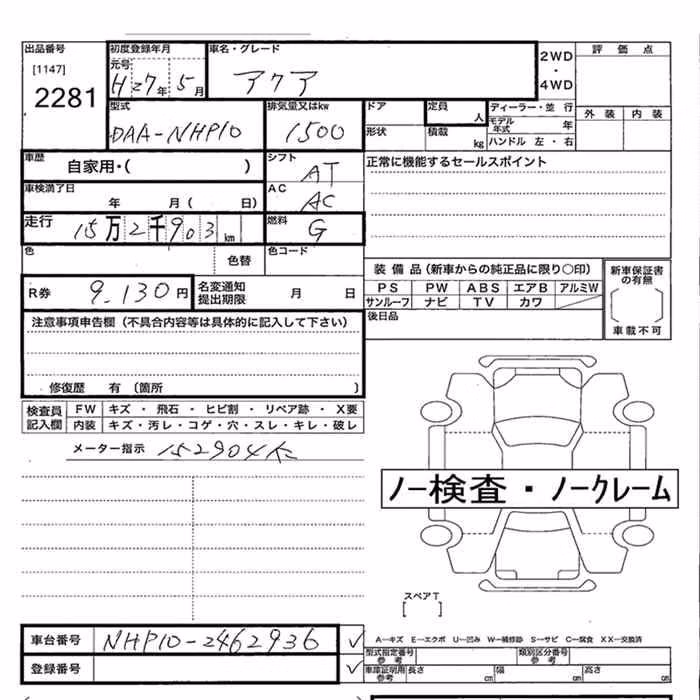 出品番号 初度登録年月 車名・グレード 2WD・4WD 評価点
[1147] 元号 H27年5月 アクア
2281 外装 内装
型式 排気量又はkw ドア 定員 人 ディーラー・並行
DAA-NHP10 1500 形状 積載 kg モデル年式 年
ハンドル 左・右
車歴 自家用・( ) シフト AT 正常に機能するセールスポイント
車検満了日 年 月( 日) AC AC
走行 15万2千903km 燃料 G
色 色替 色コード 装備品(新車からの純正品に限り○印) 新車保証書の有無
R券 9,130円 名変通知提出期限 月 日 PS PW ABS エアB アルミW
サンルーフ ナビ TV カワ [ ]
注意事項申告欄(不具合内容等は具体的に記入して下さい) 後日品 車載不可
修復歴 有(箇所 )
検査員記入欄 FW キズ・飛石・ヒビ割・リペア跡・X要
内装 キズ・汚レ・コゲ・穴・スレ・キレ・破レ
メーター指示 152904K
ノー検査・ノークレーム
スペアT
[ ]
車台番号 NHP10-2462936 ✓ A―キズ E―エクボ U―凹み W―補修跡 S―サビ C―腐食 XX―交換済
型式指定番号 参考 類別区分番号 参考
登録番号 ✓ 車庫証明用 参考 長さ cm 幅 cm 高さ cm